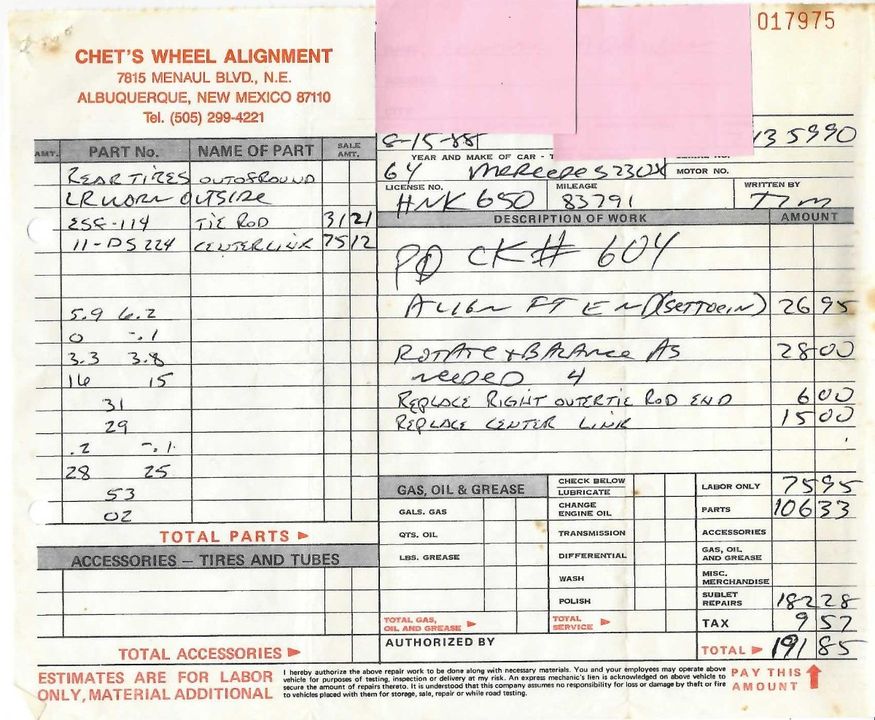 017975
CHET'S WHEEL ALIGNMENT
7815 MENAUL BLVD., N.E.
ALBUQUERQUE, NEW MEXICO 87110
Tel. (505) 299-4221
8-15-88
135990
AMT. PART No. NAME OF PART SALE AMT.
YEAR AND MAKE OF CAR - MOTOR NO.
64 MERCEDES 230X
LICENSE NO. MILEAGE WRITTEN BY
HNK 650 83791 TIM
REAR TIRES OUTOFROUND
LR WORN OUTSIDE
ESS-114 TIE ROD 31 21
11-DS 224 CENTERLINK 75 12
5.9 6.2
0 -.1
3.3 3.8
16 15
31
29
.2 -.1
28 25
53
02
TOTAL PARTS
ACCESSORIES – TIRES AND TUBES
TOTAL ACCESSORIES
DESCRIPTION OF WORK AMOUNT
PD CK# 604
ALIGN FT END (SET TOEIN) 26 95
ROTATE + BALANCE AS 28 00
NEEDED 4
REPLACE RIGHT OUTERTIE ROD END 6 00
REPLACE CENTER LINK 15 00
GAS, OIL & GREASE CHECK BELOW LABOR ONLY 75 95
LUBRICATE
GALS. GAS CHANGE ENGINE OIL PARTS 106 33
QTS. OIL TRANSMISSION ACCESSORIES
LBS. GREASE DIFFERENTIAL GAS, OIL AND GREASE
WASH MISC. MERCHANDISE
POLISH SUBLET REPAIRS 182 28
TOTAL GAS, OIL AND GREASE TOTAL SERVICE TAX 9 57
AUTHORIZED BY TOTAL 191 85
ESTIMATES ARE FOR LABOR ONLY, MATERIAL ADDITIONAL
I hereby authorize the above repair work to be done along with necessary materials. You and your employees may operate above
vehicle for purposes of testing, inspection or delivery at my risk. An express mechanic's lien is acknowledged on above vehicle to
secure the amount of repairs thereto. It is understood that this company assumes no responsibility for loss or damage by theft or fire
to vehicles placed with them for storage, sale, repair or while road testing.
PAY THIS AMOUNT